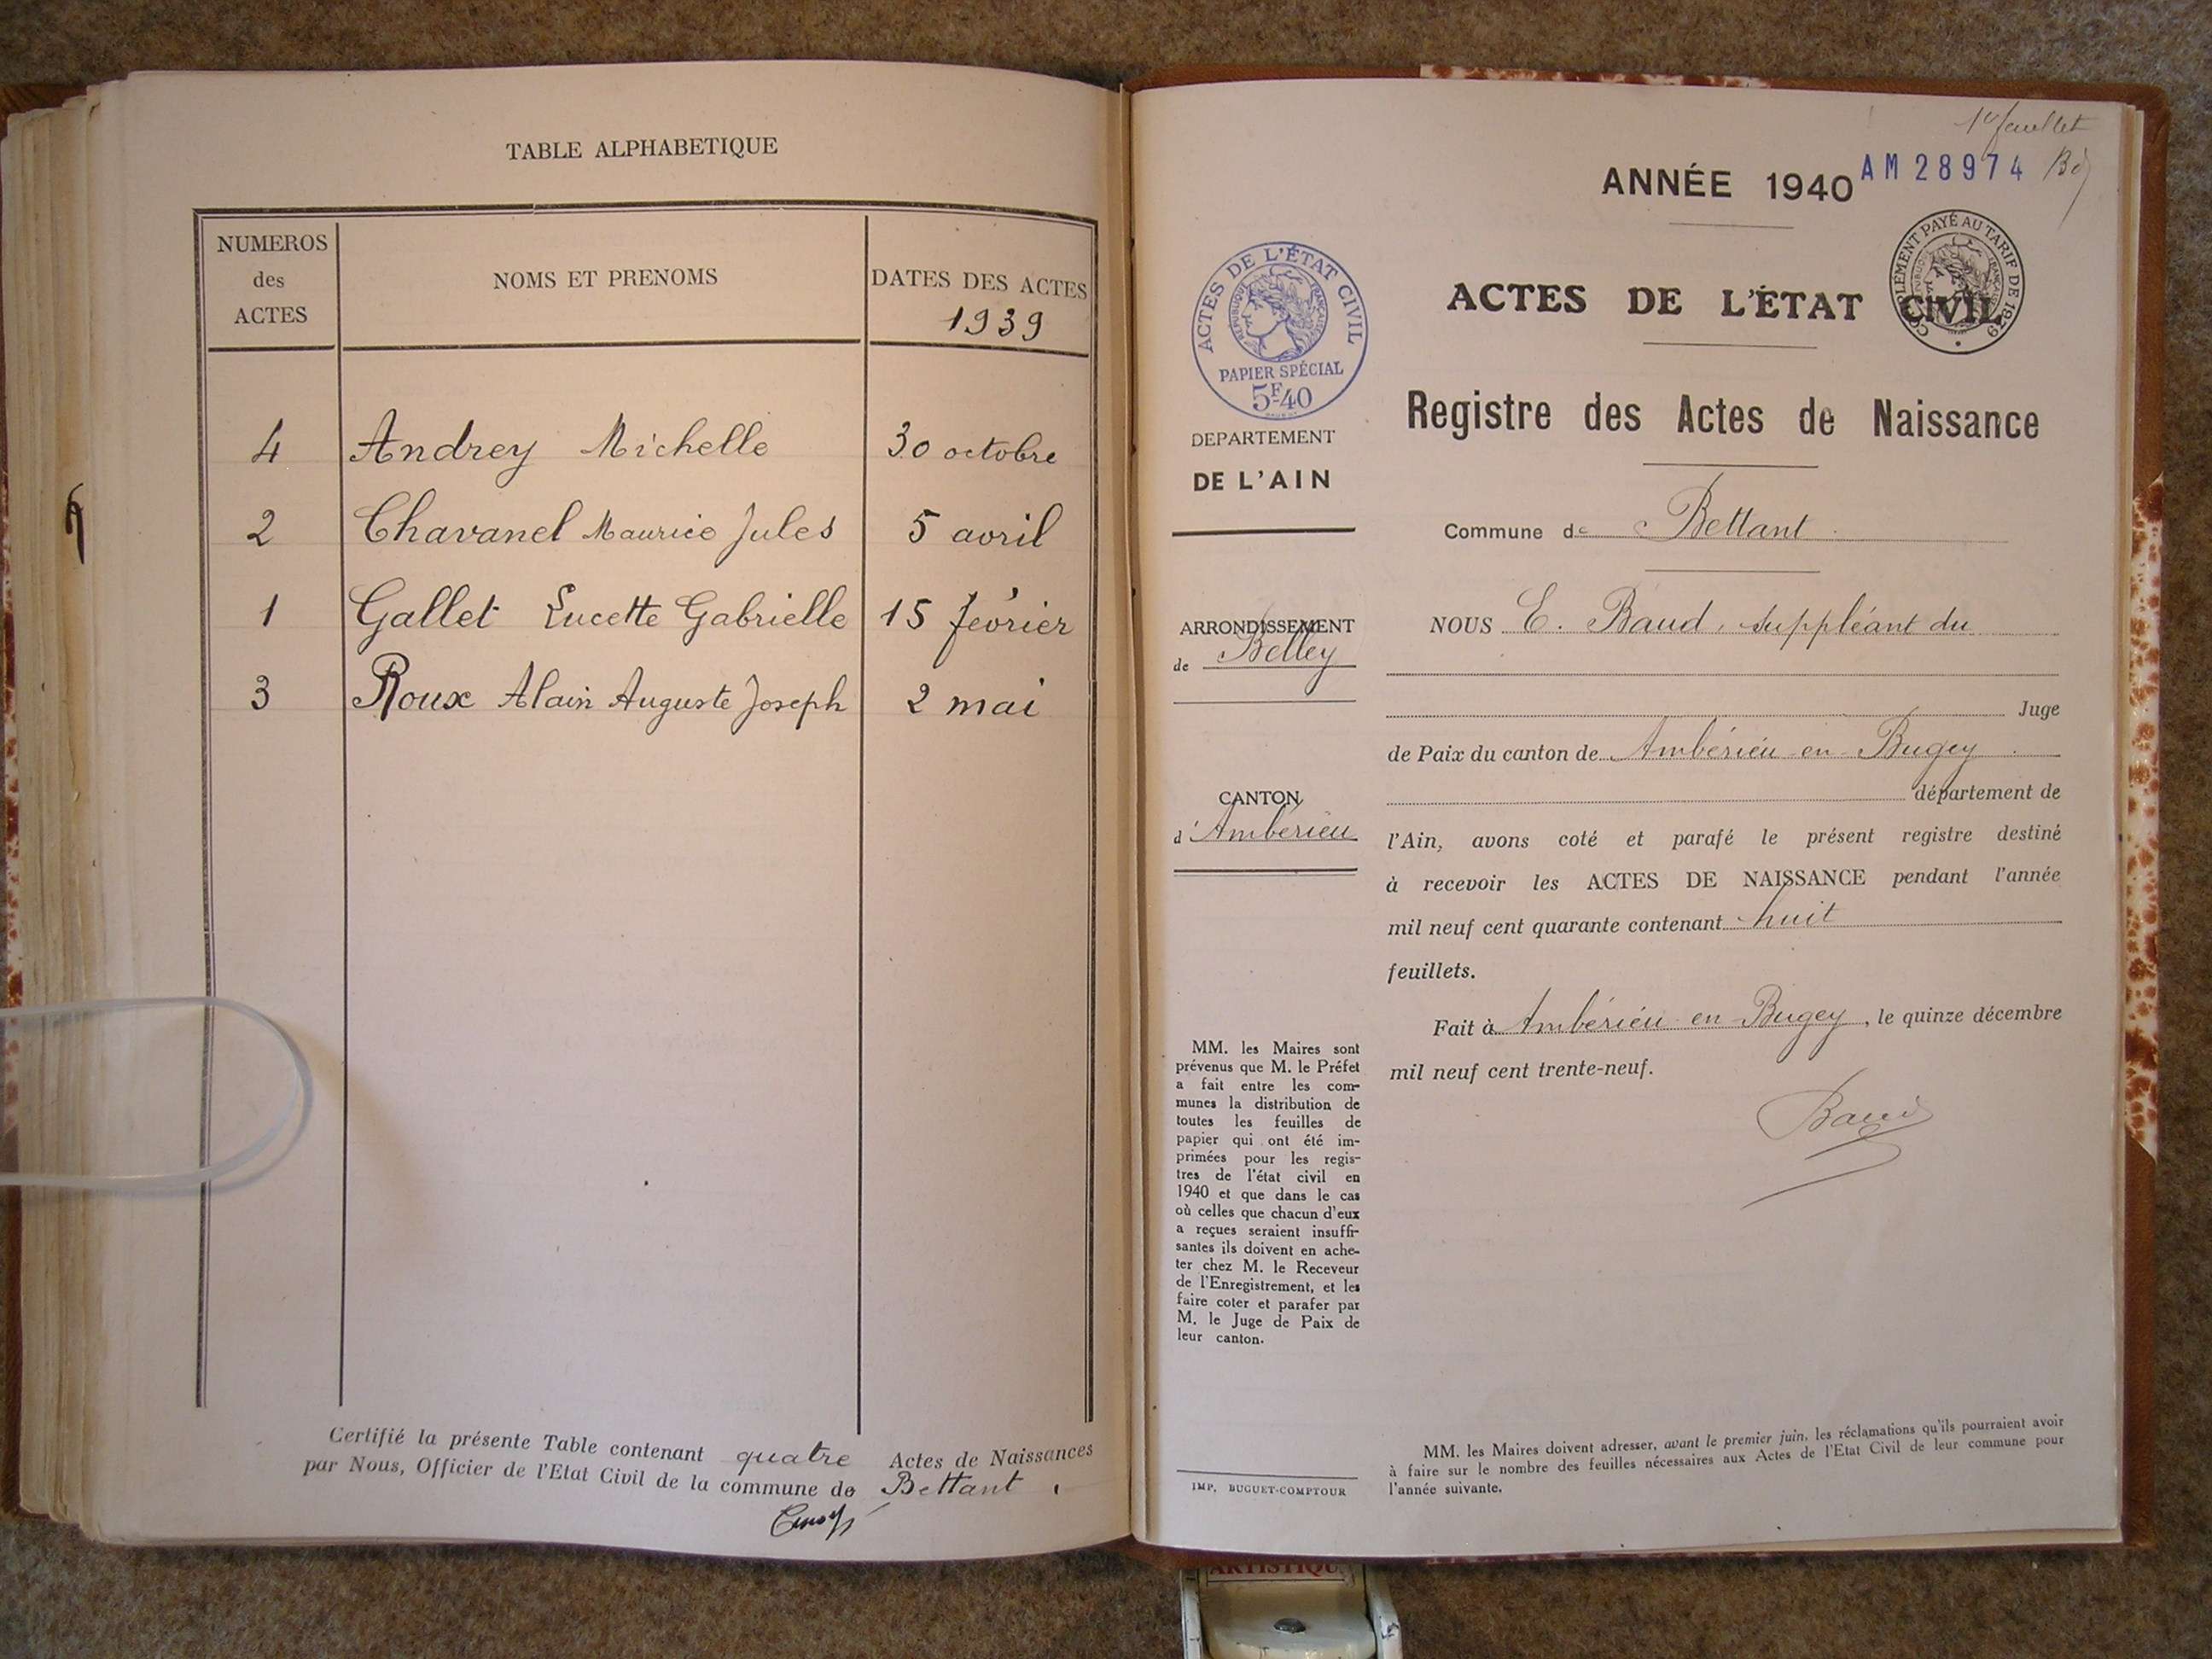 TABLE ALPHABETIQUE
NUMEROS
des
ACTES
NOMS ET PRENOMS
DATES DES ACTES
1939
4 Andrey Michelle 30 octobre
2 Chavanel Maurice Jules 5 avril
1 Gallet Lucette Gabrielle 15 février
3 Roux Alain Auguste Joseph 2 mai
Certifié la présente Table contenant quatre Actes de Naissances
par Nous, Officier de l'Etat Civil de la commune de Bettant.
1er feuillet
ANNÉE 1940
AM 28974
ACTES DE L'ÉTAT CIVIL
PAPIER SPÉCIAL
5F40
RÉPUBLIQUE FRANÇAISE
COMPLÉMENT PAYÉ AU TARIF DE 1939
ACTES DE L'ÉTAT CIVIL
Registre des Actes de Naissance
DEPARTEMENT
DE L'AIN
Commune de Bettant.
ARRONDISSEMENT
de Belley
CANTON
d'Ambérieu
NOUS E. Baud, suppléant du
Juge
de Paix du canton de Ambérieu en Bugey.
département de
l'Ain, avons coté et parafé le présent registre destiné
à recevoir les ACTES DE NAISSANCE pendant l'année
mil neuf cent quarante contenant huit
feuillets.
Fait à Ambérieu en Bugey, le quinze décembre
mil neuf cent trente-neuf.
Baud
MM. les Maires sont
prévenus que M. le Préfet
a fait entre les com-
munes la distribution de
toutes les feuilles de
papier qui ont été im-
primées pour les regis-
tres de l'état civil en
1940 et que dans le cas
où celles que chacun d'eux
a reçues seraient insuffi-
santes ils doivent en ache-
ter chez M. le Receveur
de l'Enregistrement, et les
faire coter et parafer par
M. le Juge de Paix de
leur canton.
IMP. BUGUET-COMPTOUR
MM. les Maires doivent adresser, avant le premier juin, les réclamations qu'ils pourraient avoir
à faire sur le nombre des feuilles nécessaires aux Actes de l'Etat Civil de leur commune pour
l'année suivante.
ARTISTIQU